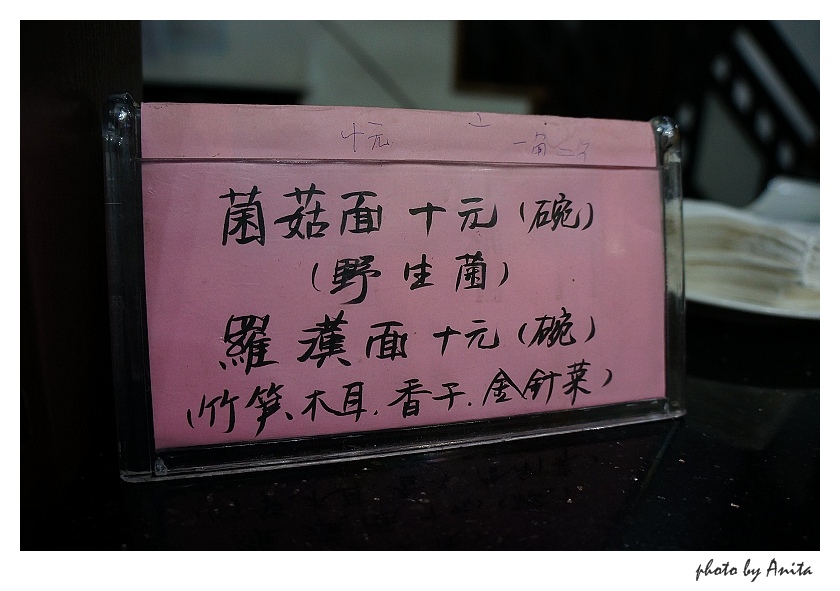 十元
菌菇面 十元(碗)
(野生菌)
羅漢面 十元(碗)
(竹笋、木耳.香干.金針菜)
photo by Anita